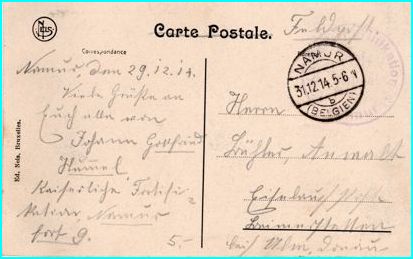 NELS
Carte Postale.
Feldpost
Correspondance
Namur, den 29.12.14.
Viele Grüße an
Euch alle von
Johann Gottfried
Hummel
Kaiserliche
Namur
fort 9.
5.-
Ed. Nels, Bruxelles.
NAMUR
31.12.14.5-6 N
b
(BELGIEN)
Herrn
Bühler, Anwalt
bei Ulm, Donau